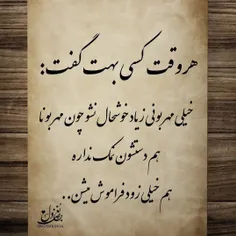 هر وقت کسی بهت گفت:
خیلی مهربونی زیاد خوشحال نشو چون مهربونا
هم دستشون نمک نداره
هم خیلی زود فراموش میشن..